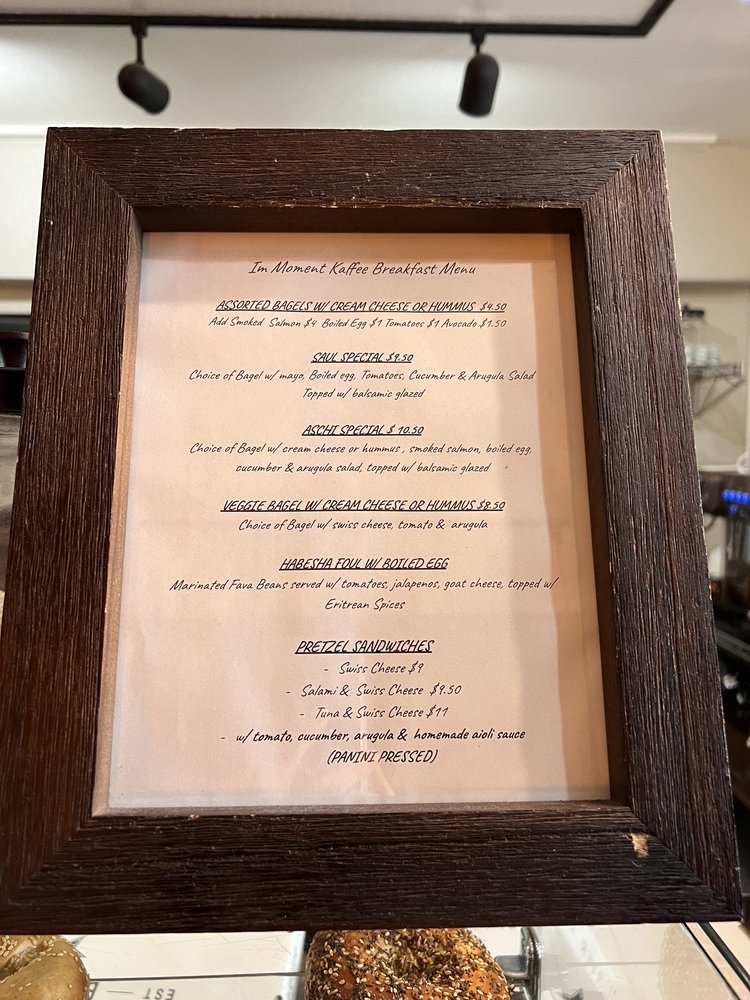 Im Moment Kaffee Breakfast Menu
ASSORTED BAGELS W/ CREAM CHEESE OR HUMMUS $4.50
Add Smoked Salmon $4 Boiled Egg $1 Tomatoes $1 Avocado $1.50
SAUL SPECIAL $9.50
Choice of Bagel w/ mayo, Boiled egg, Tomatoes, Cucumber & Arugula Salad
Topped w/ balsamic glazed
ASCHI SPECIAL $ 10.50
Choice of Bagel w/ cream cheese or hummus , smoked salmon, boiled egg,
cucumber & arugula salad, topped w/ balsamic glazed
VEGGIE BAGEL W/ CREAM CHEESE OR HUMMUS $8.50
Choice of Bagel w/ swiss cheese, tomato & arugula
HABESHA FOUL W/ BOILED EGG
Marinated Fava Beans served w/ tomatoes, jalapenos, goat cheese, topped w/
Eritrean Spices
PRETZEL SANDWICHES
- Swiss Cheese $9
- Salami & Swiss Cheese $9.50
- Tuna & Swiss Cheese $11
- w/ tomato, cucumber, arugula & homemade aioli sauce
(PANINI PRESSED)
EST